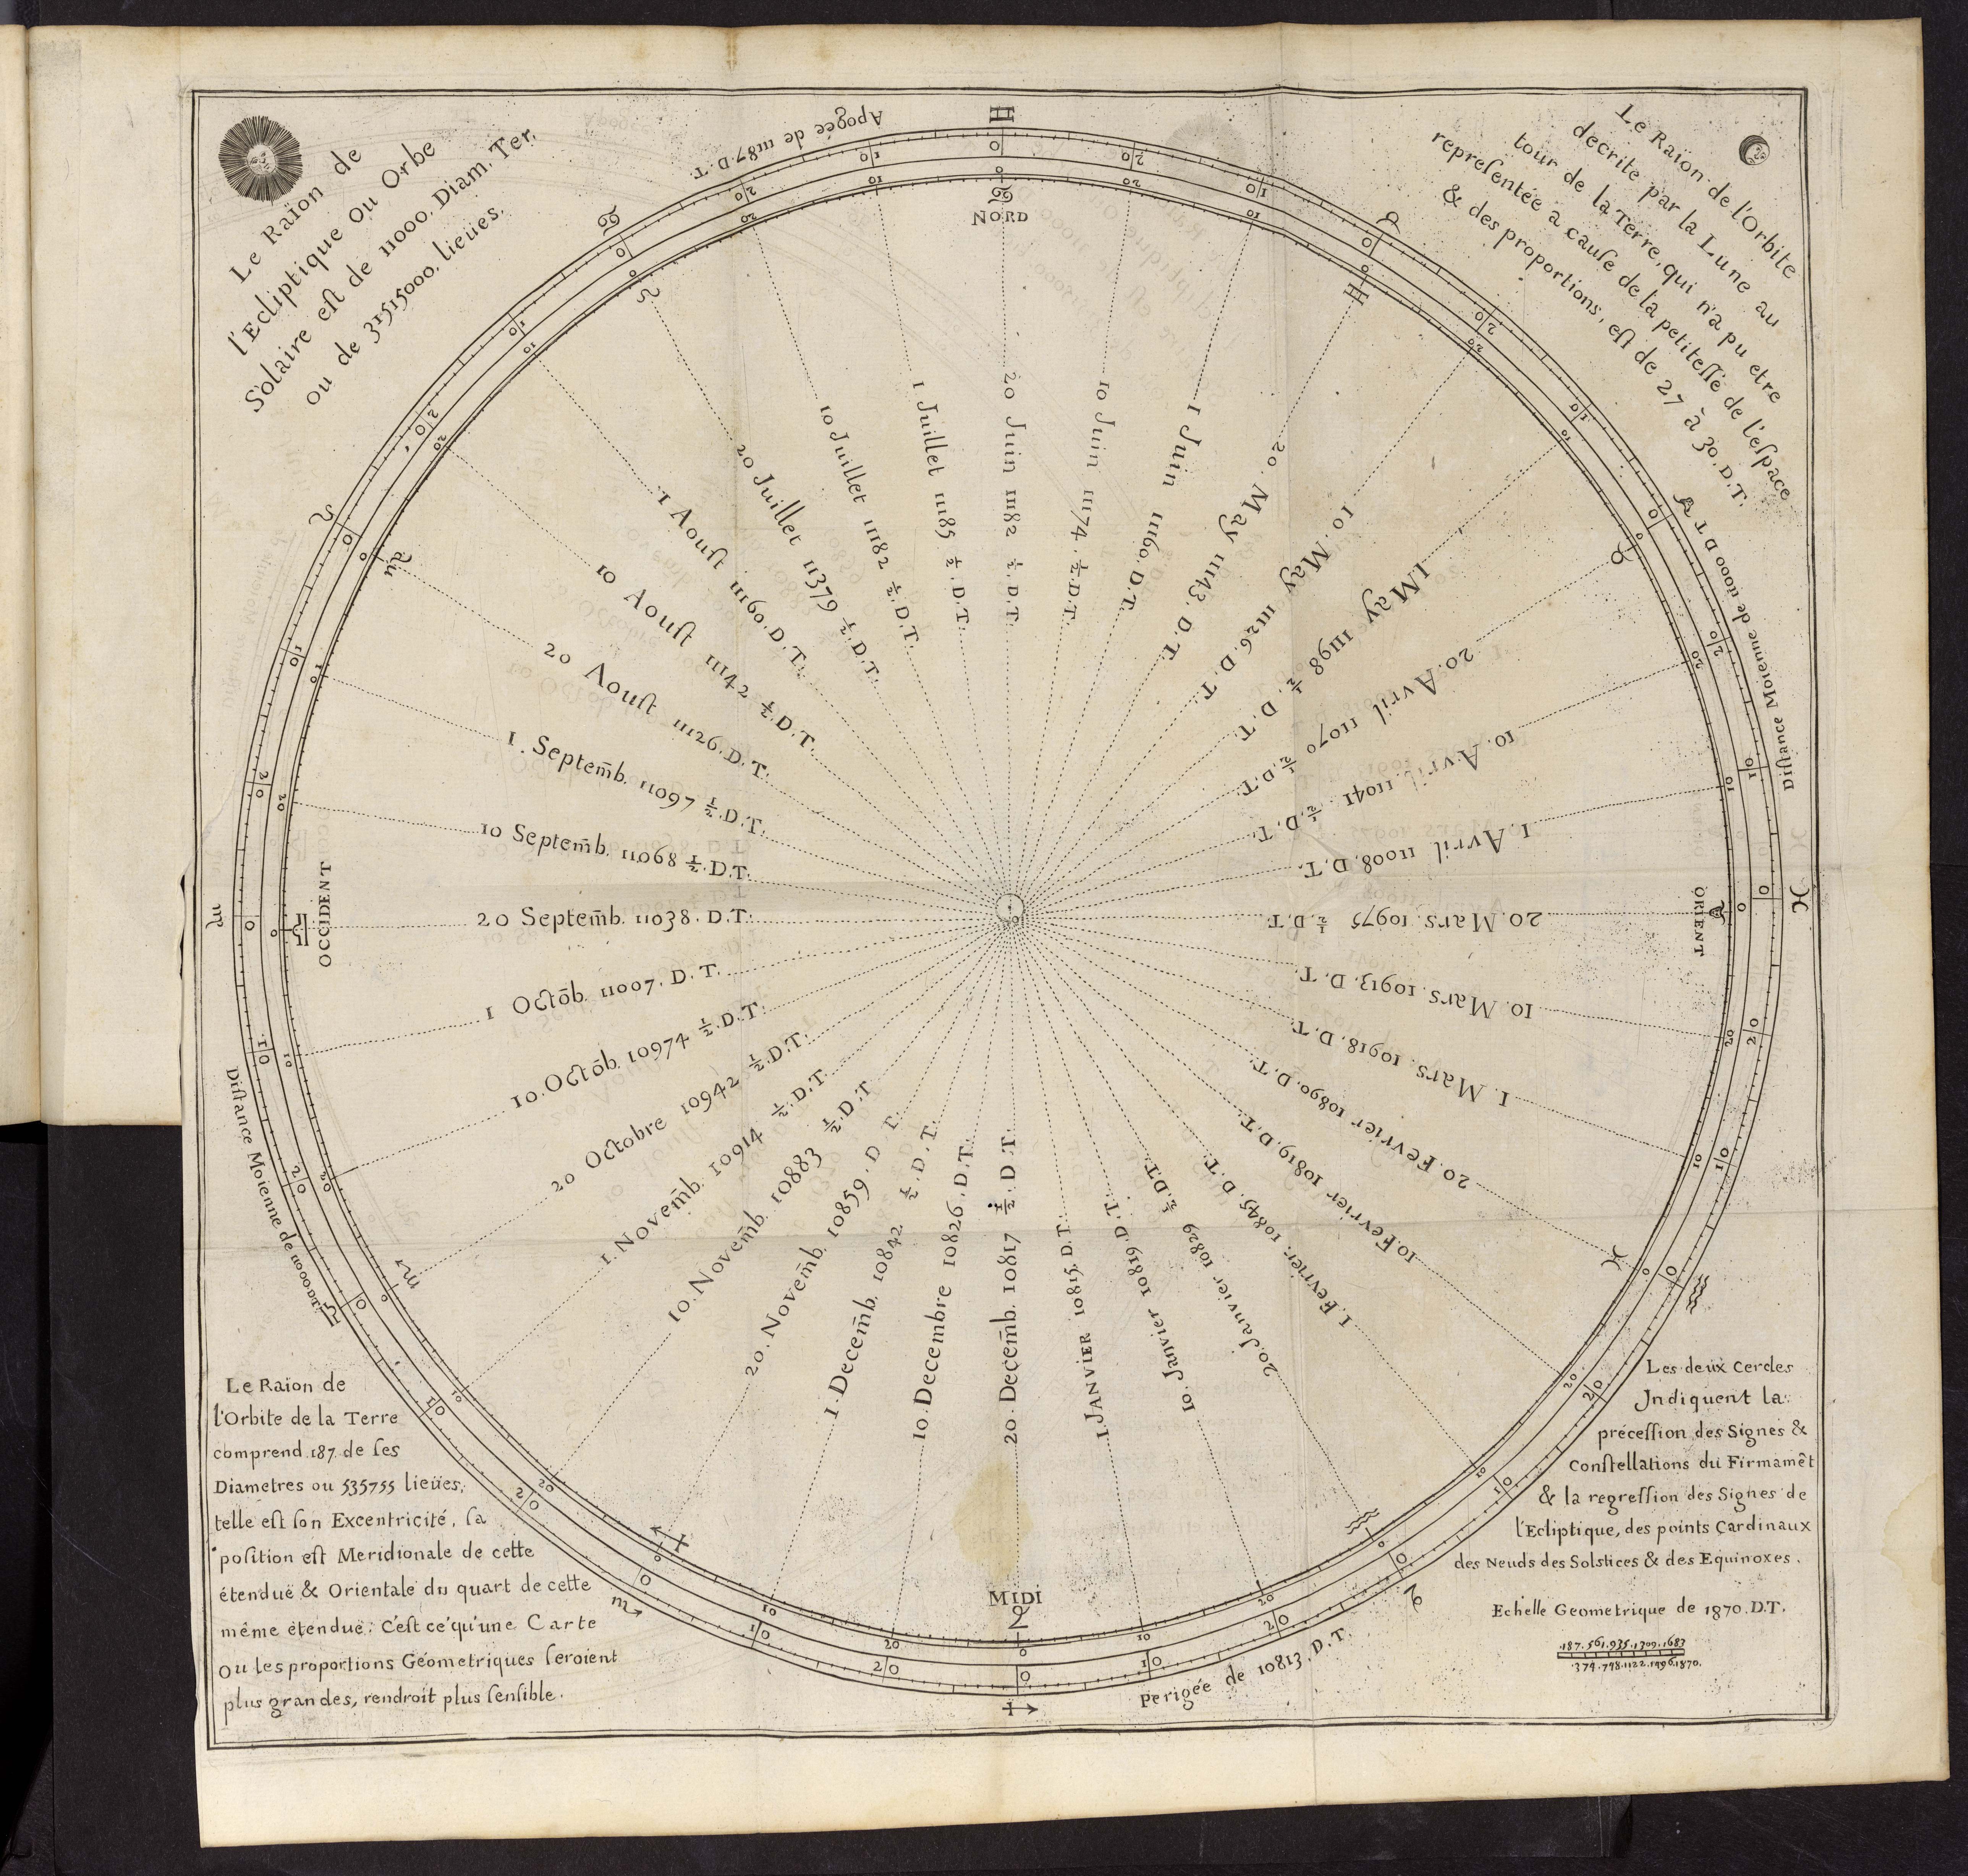 Le Raïon de
l'Ecliptique Ou Orbe
Solaire eſt de 11000. Diam. Ter.
ou de 31515000. lieües.
Apogée de 11187. D. T.
♊
♋
♉
NORD
Le Raïon de l'Orbite
decrite par la Lune au
tour de la Terre, qui n'a pu etre
repreſentée à cauſe de la petiteſſe de l'eſpace
& des proportions, eſt de 27 à 30. D. T.
Diſtance Moïenne de 11000 D. T.
ORIENT
OCCIDENT
MIDI
20 Juin 11182 ½. D. T.
10 Juin 11174. ½. D. T.
1 Juin 11160. D. T.
20. May 11143. D. T.
10. May 11126. D. T.
1 May 11198 ½. D. T
20. Avril 11070 ½. D. T.
10. Avril 11041 ½. D. T.
1. Avril 11008. D. T.
20. Mars. 10975 ½. D. T.
10. Mars. 10913. D. T.
1. Mars. 10918. D. T.
20. Fevrier 10890. D. T.
10. Fevrier 10819. D. T.
1. Fevrier. 10845. D. T.
20. Janvier 10829 ½. D. T.
10. Janvier 10819. D. T.
1. JANVIER 10815. D. T.
20. Decem̄b. 10817 ½. D. T.
10. Decembre 10826. D. T.
1. Decem̄b. 10842 ½. D. T.
20. Novem̄b. 10859. D T.
10. Novem̄b. 10883 ½. D. T
1. Novem̄b. 10914 ½. D. T.
20 Octobre 10942 ½. D. T.
10. Octōb. 10974 ½. D. T.
1 Octōb. 11007. D. T.
20 Septem̄b. 11038. D. T.
10 Septem̄b. 11068 ½. D. T.
1. Septem̄b. 11097 ½. D. T.
20 Aouſt 11126. D. T.
10 Aouſt 11142 ½. D. T.
1 Aouſt 11160. D. T.
20 Juillet 11379 ½. D. T.
10 Juillet 11182 ½. D. T.
1 Juillet 11185 ½. D. T.
Diſtance Moïenne de 11000. D. T.
Perigée de 10813. D. T.
Le Raion de
l'Orbite de la Terre
comprend 187. de ſes
Diametres ou 535755 lieües,
telle eſt ſon Excentricité, ſa
poſition eſt Meridionale de cette
étenduë & Orientale du quart de cette
même étenduë; C'eſt ce qu'une Carte
Ou les proportions Géometriques ſeroient
plus grandes, rendroit plus ſenſible.
Les deux Cercles
Jndiquent la
préceſſion des Signes &
Conſtellations du Firmamēt
& la regreſſion des Signes de
l'Ecliptique, des points Cardinaux
des Neuds des Solstices & des Equinoxes.
Echelle Geometrique de 1870. D.T.
187. 561. 935. 1309. 1683
374. 748. 1122. 1496. 1870.